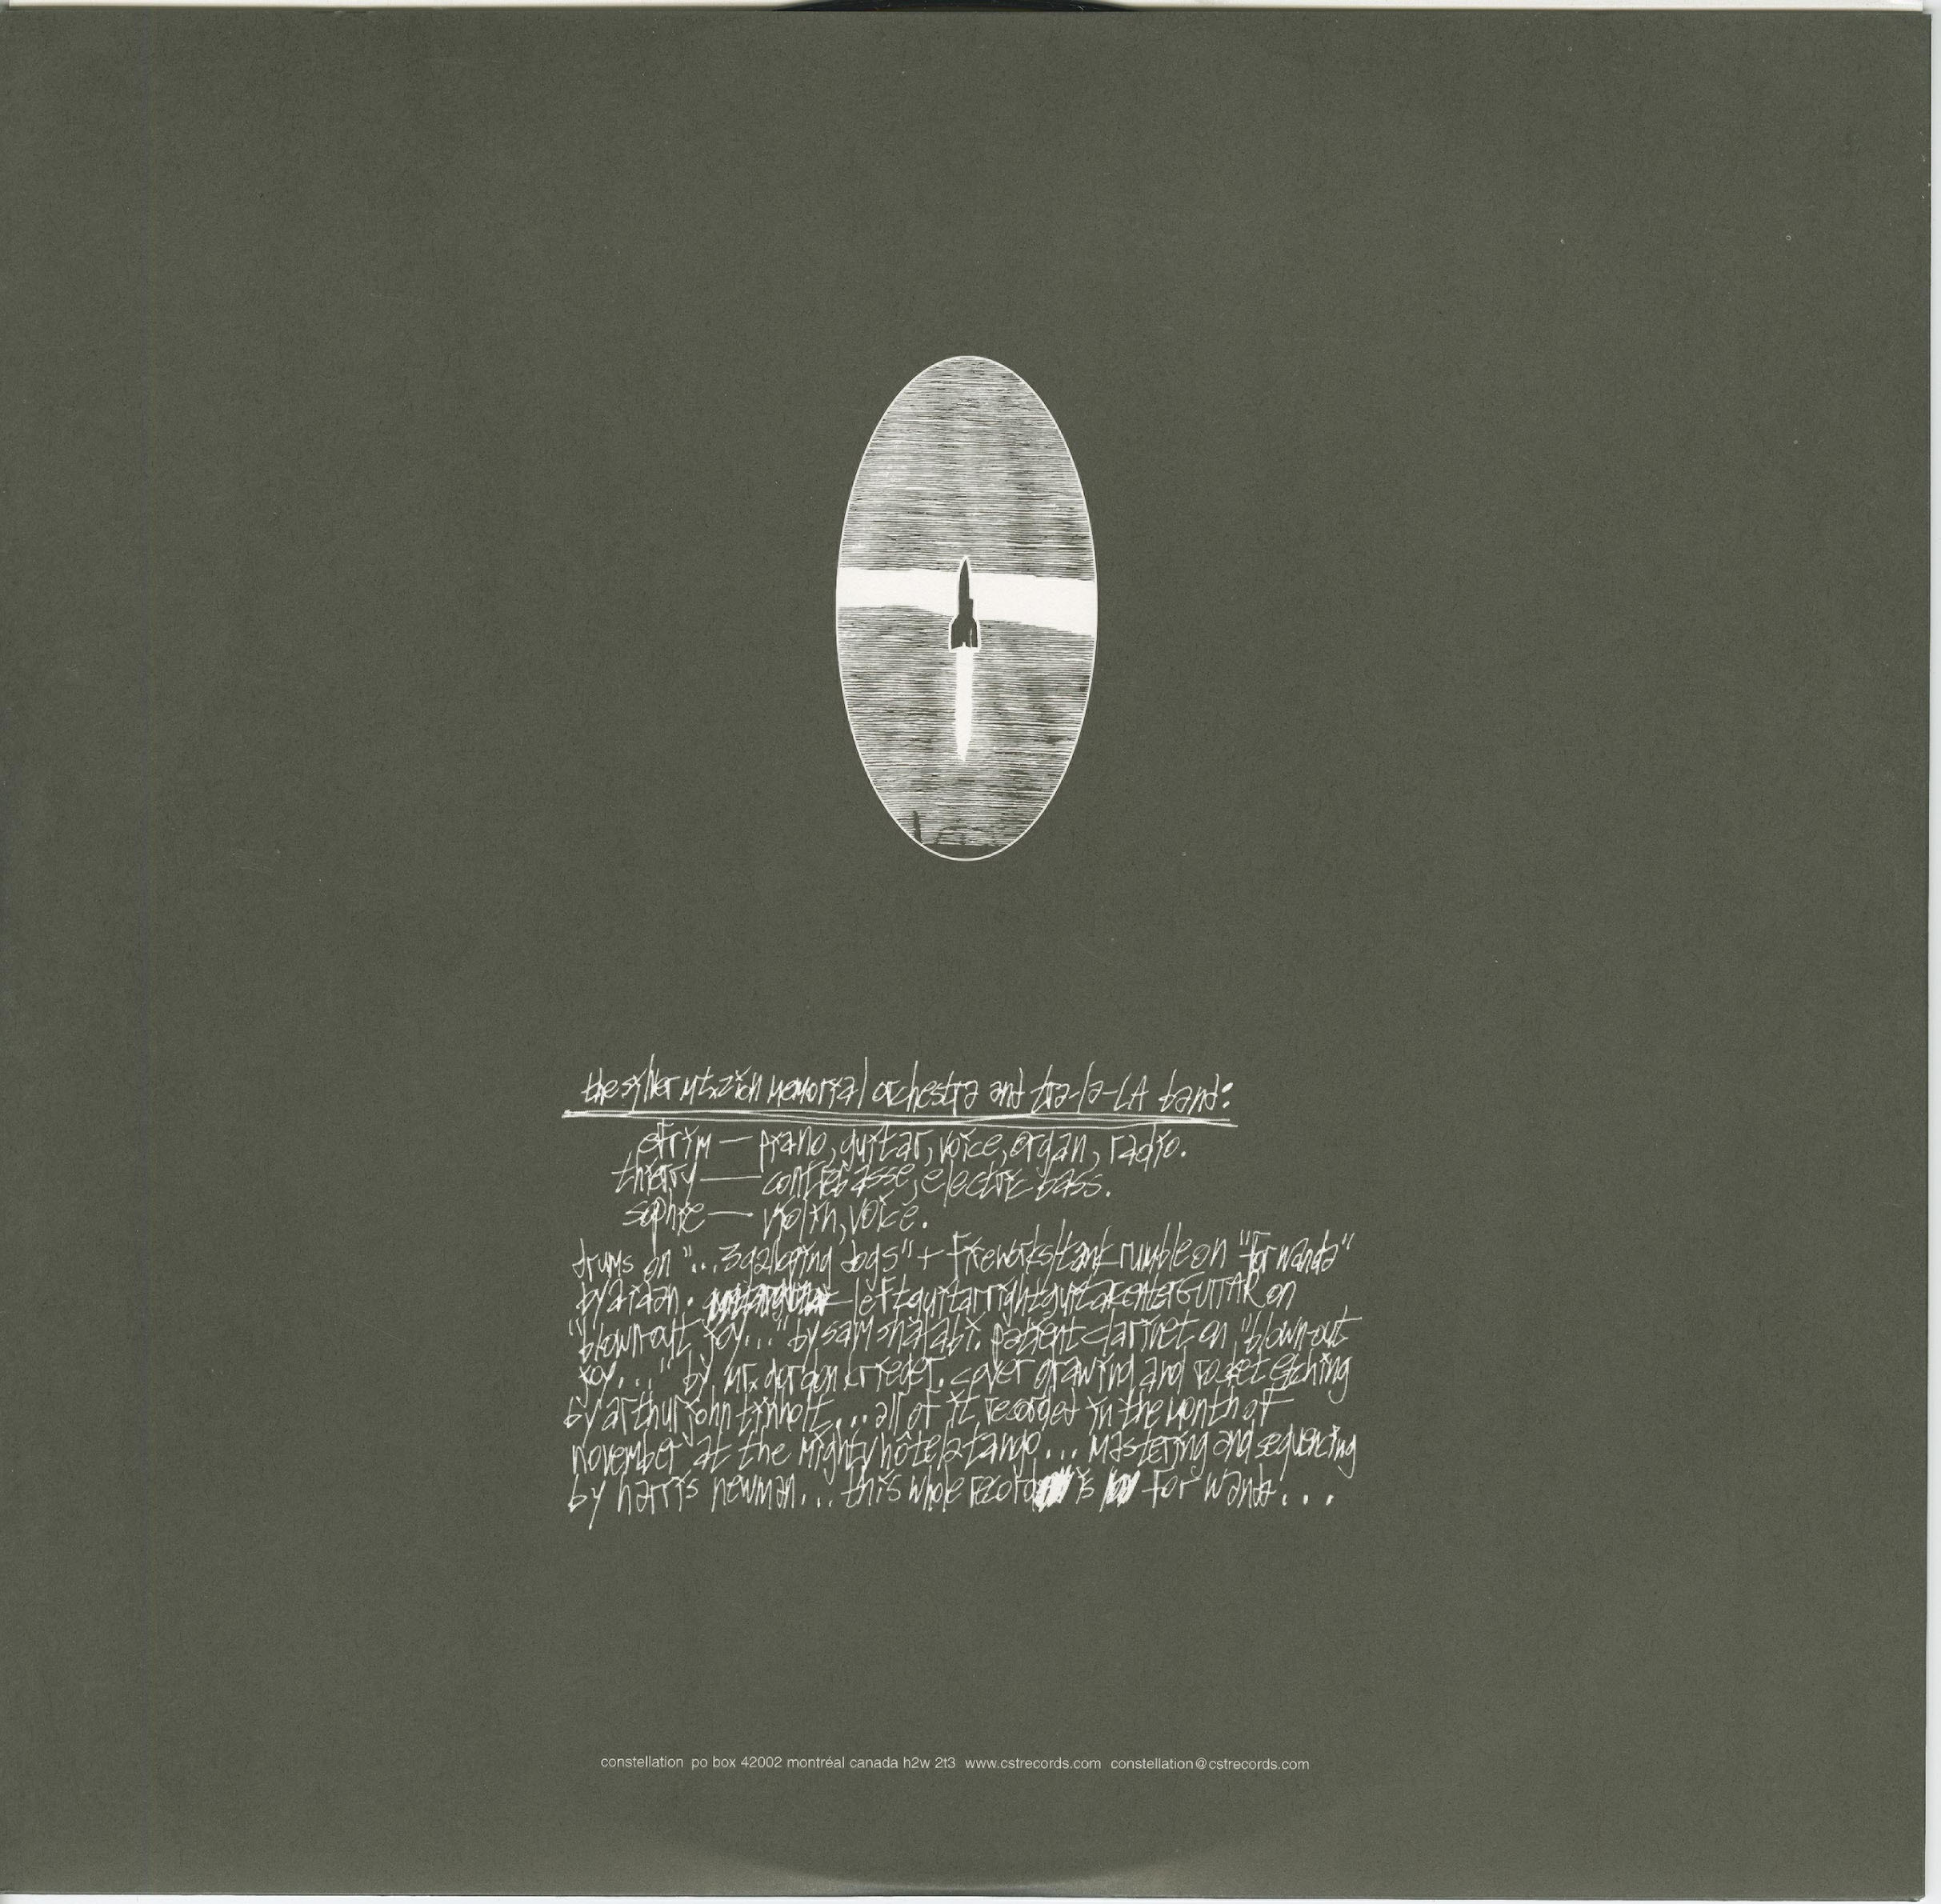 the silver mt. zion memorial orchestra and tra-la-LA band:
efrim — piano, guitar, voice, organ, radio.
thierry — contrebasse, electric bass.
sophie — violin, voice.
drums on "...3 galloping dogs" + fireworks/tank rumble on "for wanda"
by aidan. leftguitarrightguitarcenterGUITAR on
"blown-out joy..." by sam shalabi. patient clarinet on "blown-out
joy..." by mr. gordon krieger. cover drawing and rocket etching
by arthur john tinholt... all of it recorded in the month of
november at the mighty hôtel2tango... mastering and sequencing
by harris newman... this whole record is for wanda...
constellation po box 42002 montréal canada h2w 2t3 www.cstrecords.com constellation@cstrecords.com